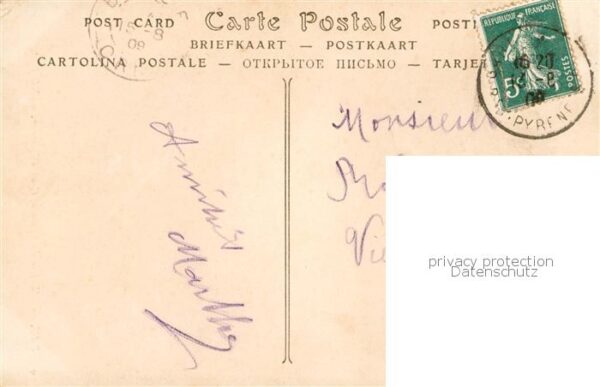 POST CARD Carte Postale POSTI
BRIEFKAART — POSTKAART
CARTOLINA POSTALE — ОТКРЫТОЕ ПИСЬМО — TARJET
REPUBLIQUE FRANÇAISE
POSTES
5
16 20
8
09
PYRENE
8
09
Monsieur
Vi
Amitiés
Marthe
privacy protection
Datenschutz